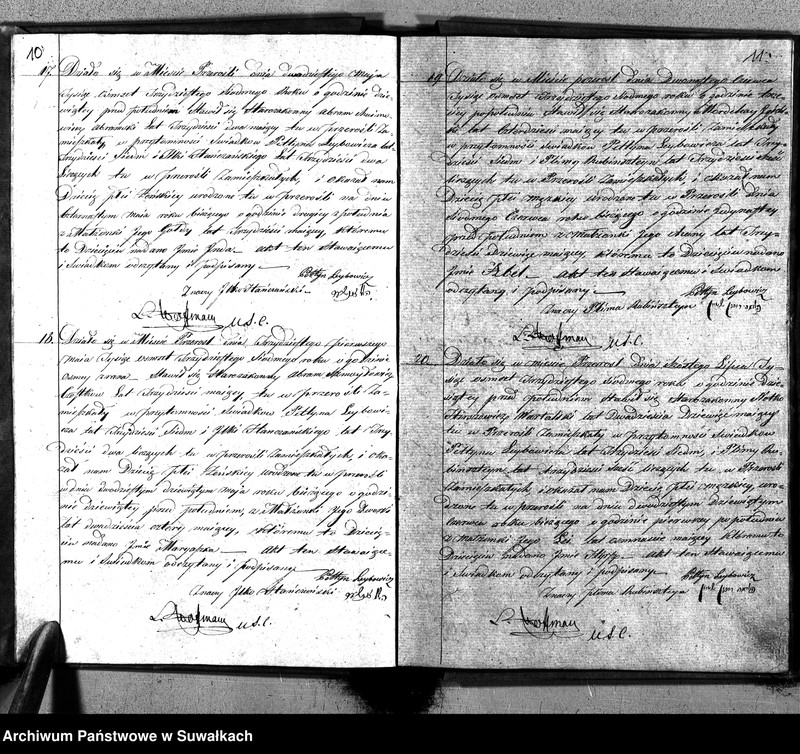 10
17. Działo się w Mieście Przerośli dnia dwudziestego Maja
tysiąc osmset trzydziestego siodmego Roku o godzinie dzie-
wiątey przed południem Stawił się Starozakonny Abram
lat trzydzieści dwa maiący tu w Przerośli Za-
mieszkały w przytomności Świadków Peltyna Leybowicza lat
trzydzieści siedm i Jtki Stanczańskiego lat trzydzieści dwa
liczących tu w Przerośli Zamieszkałych, i okazał nam
Dziecię płci Żeńskiey urodzone tu w Przerośli na dniu
maia roku bieżącego o godzinie drugiey z południa
z Małżonki Jego Goldy lat trzydzieści maiącey, któremu
to Dziecięciu nadano Jmie Juda. Akt ten Stawaiącemu
i Świadkom odczytany i podpisany
Peltyn Leybowicz
Znawy Jtko Stanczański
L. Hoffman U.S.C.
18. Działo się w Mieście Przerośl dnia trzydziestego pierwszego
Maia tysiąc osmset trzydziestego siodmego roku o godzinie
osmey zrana Stawił się Starozakonny Abram
lat trzydzieści maiący, tu w Przerośli Za-
mieszkały w przytomności Świadków Peltyna Leybowi-
cza lat trzydzieści siedm i Jtki Stanczańskiego lat trzy-
dzieści dwa liczących tu w Przerośli Zamieszkałych i oka-
zał nam Dziecię płci Żeńskiey urodzone tu w Przerośli
w dniu dwudziestym dziewiątym maja roku bieżącego o godzi-
nie dziewiątey przed południem, z Małżonki Jego Dworki
lat dwadzieścia cztery maiącey, któremu to Dziecię-
ciu nadano Jmie Maryaska Akt ten Stawaiące-
mu i Świadkom odczytany i podpisany
Peltyn Leybowicz
Znawy Jtko Stanczański
L. Hoffman U.S.C.
11
19. Działo się w Mieście Przerośl dnia Dwunastego Czerwca
tysiąc osmset trzydziestego siodmego roku o godzinie trze-
ciey popołudniu Stawił się Starozakonny Mordchay
lat czterdzieści maiący tu w Przerośli Zamieszkały
w przytomności Świadków Peltyna Leybowicza lat trzy-
dzieści siedm i Plima Rubinszteyn lat trzydzieści sześć
liczących tu w Przerośli Zamieszkałych, i okazał nam
Dziecię płci męzkiey urodzone tu w Przerośli Dnia
siodmego Czerwca roku bieżącego o godzinie jedynastey
przed południem z małżonki Jego Chany lat trzy-
dzieści dziewięć maiącey, któremu to Dziecięciu nadano
Jmie Jzbel Akt ten Stawaiącemu i Świadkom
odczytany i podpisany
Peltyn Leybowicz
Znawy Plima Rubinszteyn
L. Hoffman U.S.C.
20. Działo się w mieście Przerośl Dnia szóstego Lipca ty-
siąc osmset trzydziestego siodmego roku o godzinie dzie-
siątey przed południem Stawił się Starozakonny
lat dwadzieścia dziewięć maiący
tu w Przerośli Zamieszkały w przytomności Świadków
Peltyna Leybowicza lat trzydzieści siedm, i Plimy Ru-
binsztejna lat trzydzieści sześć liczących tu w Przerośli
Zamieszkałych i okazał nam Dziecię płci męzkiey, uro-
dzone tu w Przerośli na dniu dwudziestym dziewiątym
czerwca roku bieżącego o godzinie pierwszey po południu
z małżonki Jego maiącey któremu to
Dziecięciu nadano Jmie akt ten Stawaiącemu
i Świadkom odczytany i podpisany
Peltyn Leybowicz
Znawy Plima Rubinsztejn
L. Hoffman U.S.C.
Archiwum Państwowe w Suwałkach